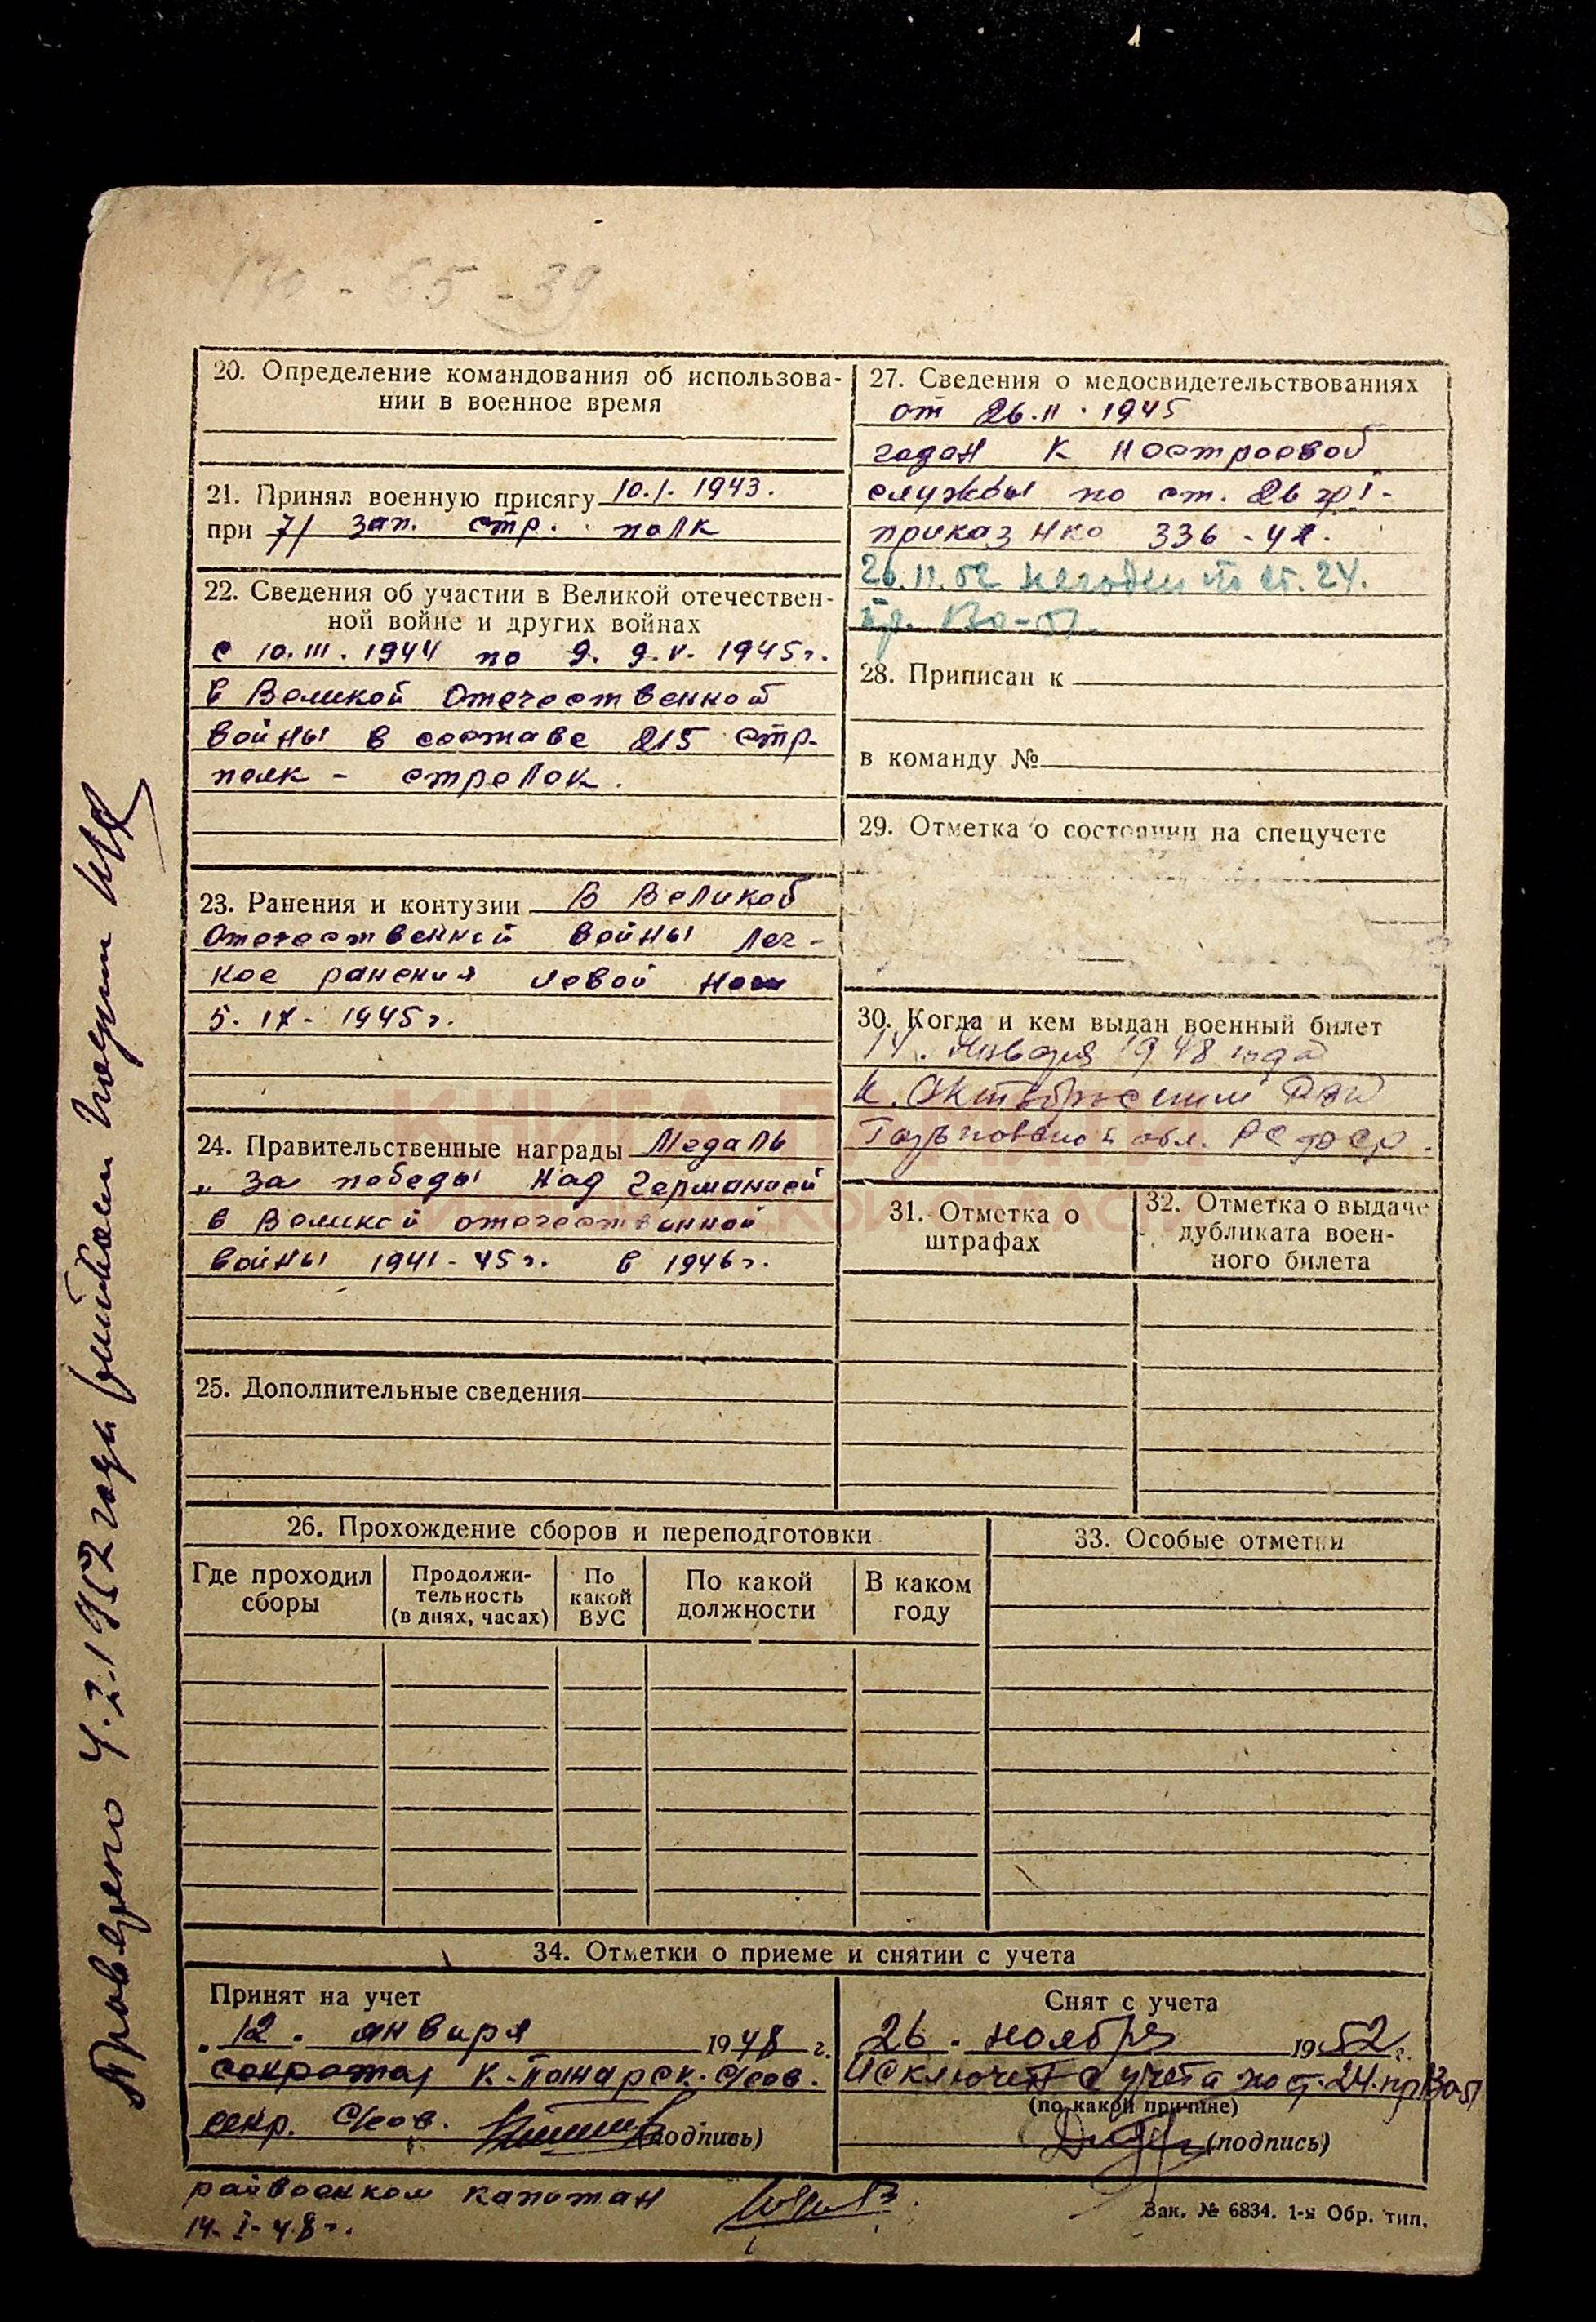 130 - 55 - 39
20. Определение командования об использова-
нии в военное время
21. Принял военную присягу 10.I. 1943.
при 71 зап. стр. полк
22. Сведения об участии в Великой отечествен-
ной войне и других войнах
с 10.III.1944 по 9. 9.V. 1945г.
в Великой Отечественной
войны в составе 215 стр.
полк - стрелок.
23. Ранения и контузии В Великой
Отечественной войны лег-
кое ранения левой
5. IX - 1945г.
24. Правительственные награды Медаль
„За победы над Германией
в Великой отечественной
войны 1941-45г. в 1946г.
25. Дополнительные сведения
26. Прохождение сборов и переподготовки
Где проходил
сборы
Продолжи-
тельность
(в днях, часах)
По
какой
ВУС
По какой
должности
В каком
году
27. Сведения о медосвидетельствованиях
от 26.II.1945
годен к нестроевой
службы по ст. 26 гр I-
приказ НКО 336 - 42.
26.11.52 негоден по ст. 24.
пр. 130-51.
28. Приписан к
в команду №
29. Отметка о состоянии на спецучете
30. Когда и кем выдан военный билет
14. января 1948 года
К. Октябрьским РВК
обл. РСФСР.
31. Отметка о
штрафах
32. Отметка о выдаче
дубликата воен-
ного билета
33. Особые отметки
34. Отметки о приеме и снятии с учета
Принят на учет
„12. января 1948 г.
секретар К. Пожарск. с/сов.
секр. с/сов. (подпись)
райвоенком капитан
14. I-48г.
Снят с учета
26. ноября 1952г.
Исключен с учета по ст. 24. пр 130-51
(по какой причине)
(подпись)
Зак. № 6834. 1-я Обр. тип.
Проведено 4.2.1952 года
КНИГА ПАМЯТИ